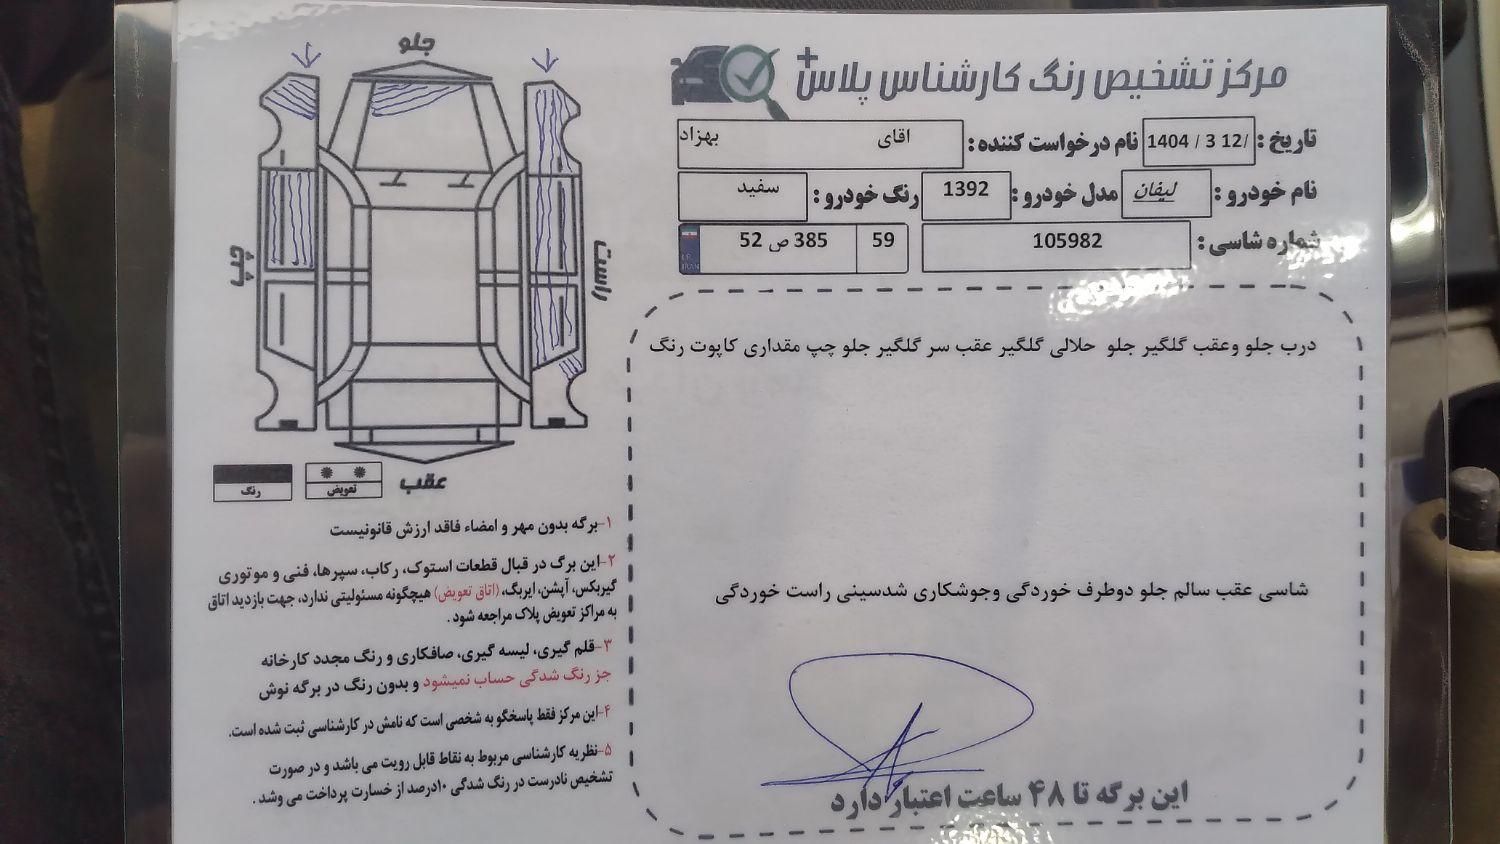 مرکز تشخیص رنگ کارشناس پلاس+
تاریخ : /12 3 / 1404 نام درخواست کننده : اقای بهزاد
نام خودرو : لیفان مدل خودرو : 1392 رنگ خودرو : سفید
شماره شاسی : 105982 59 385 ص 52
I.R.
IRAN
درب جلو وعقب گلگیر جلو حلالی گلگیر عقب سر گلگیر جلو چپ مقداری کاپوت رنگ
شاسی عقب سالم جلو دوطرف خوردگی وجوشکاری شدسینی راست خوردگی
این برگه تا ۴۸ ساعت اعتبار دارد
جلو
راست
چپ
عقب
تعویض
رنگ
۱-برگه بدون مهر و امضاء فاقد ارزش قانونیست
۲-این برگ در قبال قطعات استوک، رکاب، سپرها، فنی و موتوری
گیربکس، آپشن، ایربگ، (اتاق تعویض) هیچگونه مسئولیتی ندارد، جهت بازدید اتاق
به مراکز تعویض پلاک مراجعه شود .
۳-قلم گیری، لیسه گیری، صافکاری و رنگ مجدد کارخانه
جز رنگ شدگی حساب نمیشود و بدون رنگ در برگه نوش
۴-این مرکز فقط پاسخگو به شخصی است که نامش در کارشناسی ثبت شده است.
۵-نظریه کارشناسی مربوط به نقاط قابل رویت می باشد و در صورت
تشخیص نادرست در رنگ شدگی ۱۰درصد از خسارت پرداخت می وشد .